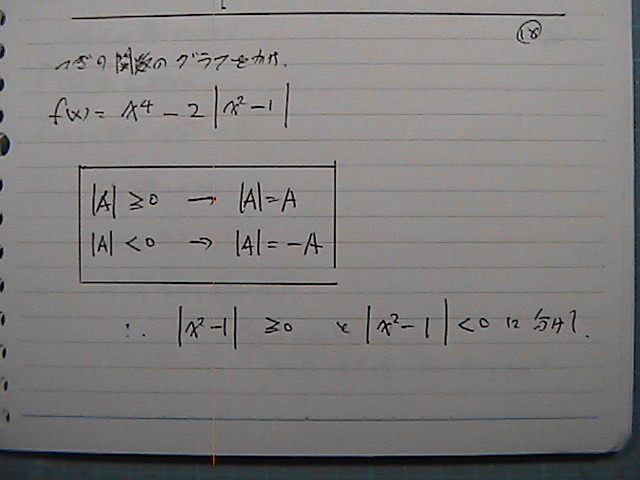 ⑱
つぎの関数のグラフをかけ.
f(x) = x⁴ - 2|x² - 1|
|A| ≧ 0 → |A| = A
|A| < 0 → |A| = -A
∴ |x² - 1| ≧ 0 と |x² - 1| < 0 に分ける.